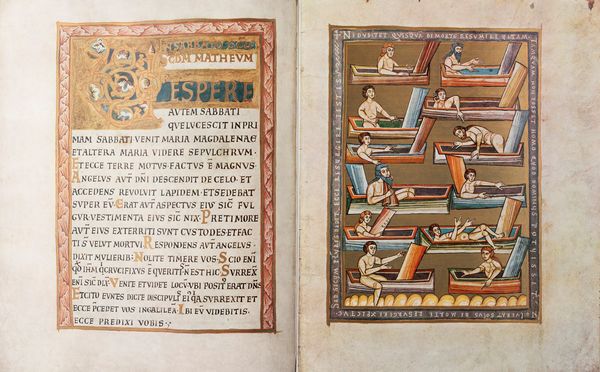 IN SABBATO
SCDM MATHEVM
VESPERE
AVTEM SABBATI
QVE LVCESCIT IN PRI
MAM SABBATI VENIT MARIA MAGDALENAE
ET ALTERA MARIA VIDERE SEPVLCHRVM·
ET ECCE TERRE MOTVS FACTVS Ē MAGNVS·
ANGELVS AVT̄ DN̄I DESCENDIT DE CELO· ET
ACCEDENS REVOLVIT LAPIDEM· ET SEDEBAT
SVPER EV̄· ERAT AVT̄ ASPECTVS EIVS SIC̄ FVL
GVR· VESTIMENTA EIVS SIC̄ NIX· PRE TIMORE
AVT̄ EIVS EXTERRITI SVNT CVSTODES· ET FAC
TI S̄ VELVT MORTVI· RESPONDENS AVT̄ ANGELVS·
DIXIT MVLIERIB· NOLITE TIMERE VOS· SCIO ENI̅
QD̄ IHM̄ Q̄ CRVCIFIXVS Ē QVERITIS· N̄ EST HIC· SVRREX̄
ENĪ SIC̄ DIX̄· VENITE ET VIDETE LOCV̄ VBI POSIT' ERAT DN̄S·
ET CITO EVNTES DICITE DISCIPVLI' EI' QA SVRREXIT ET
ECCE P̄CEDET VOS IN GALILEA· IBI EV̄ VIDEBITIS·
ECCE PREDIXI VOBIS·
NE DVBITET QVISQVA DE MORTE RESVMERE VITAM
HOC POSSET HOMO QVOD DOMINVS
SOLVS DE MORTE RESVRGERE